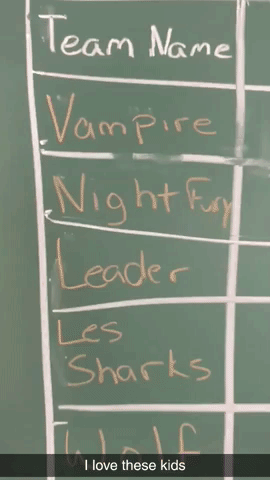 Team Name
Vampire
Night Fury
Leader
Les
Sharks
Wolf
I love these kids